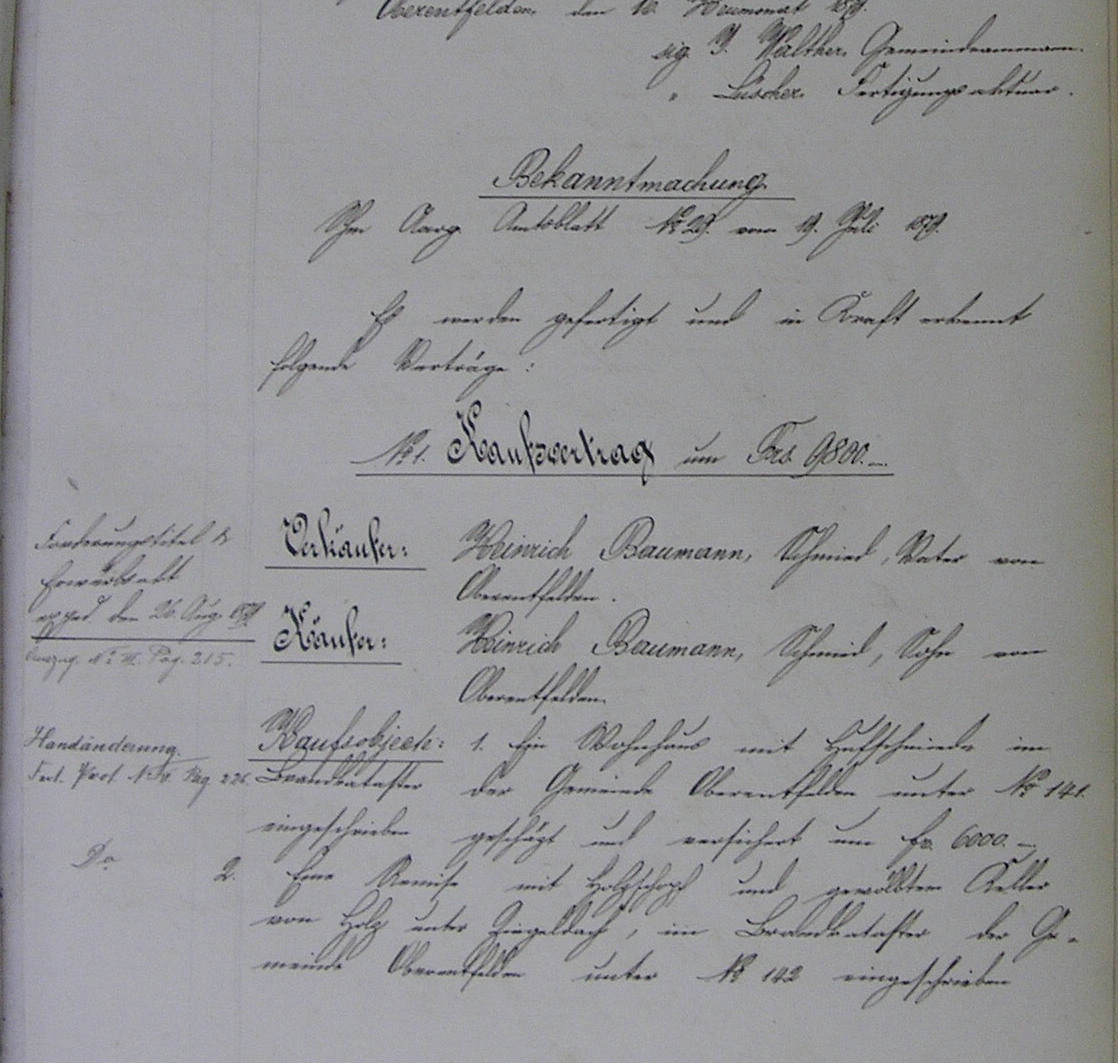 Oberentfelden, den 16. Heumonat 1879.
sig. J. Walther, Gemeindeammann.
" Lüscher, Fertigungsaktuar.
Bekanntmachung
Im Aarg. Amtsblatt No 29. vom 19. Juli 1879.
Es werden gefertigt und in Kraft erkennt
folgende Verträge:
No 1. Kaufsvertrag um Frs. 9800.–
Forderungstitel &
Erwerbsakt
exped. den 26. Aug. 1879
Auszug. No III. Pag. 215.
Verkäufer: Heinrich Baumann, Schmied, Vater von
Oberentfelden.
Käufer: Heinrich Baumann, Schmied, Sohn von
Oberentfelden.
Handänderung.
Fert. Prot. Pag. 226.
Kaufsobject: 1. Ein Wohnhaus mit Hufschmiede im
Brandkataster der Gemeinde Oberentfelden unter No 141.
eingeschrieben geschäzt und versichert um fr. 6000.–
Do 2. Eine Remise mit Holzschopf und gewölbtem Keller
von Holz unter Ziegeldach, im Brandkataster der Ge-
meinde Oberentfelden unter No 142 eingeschrieben